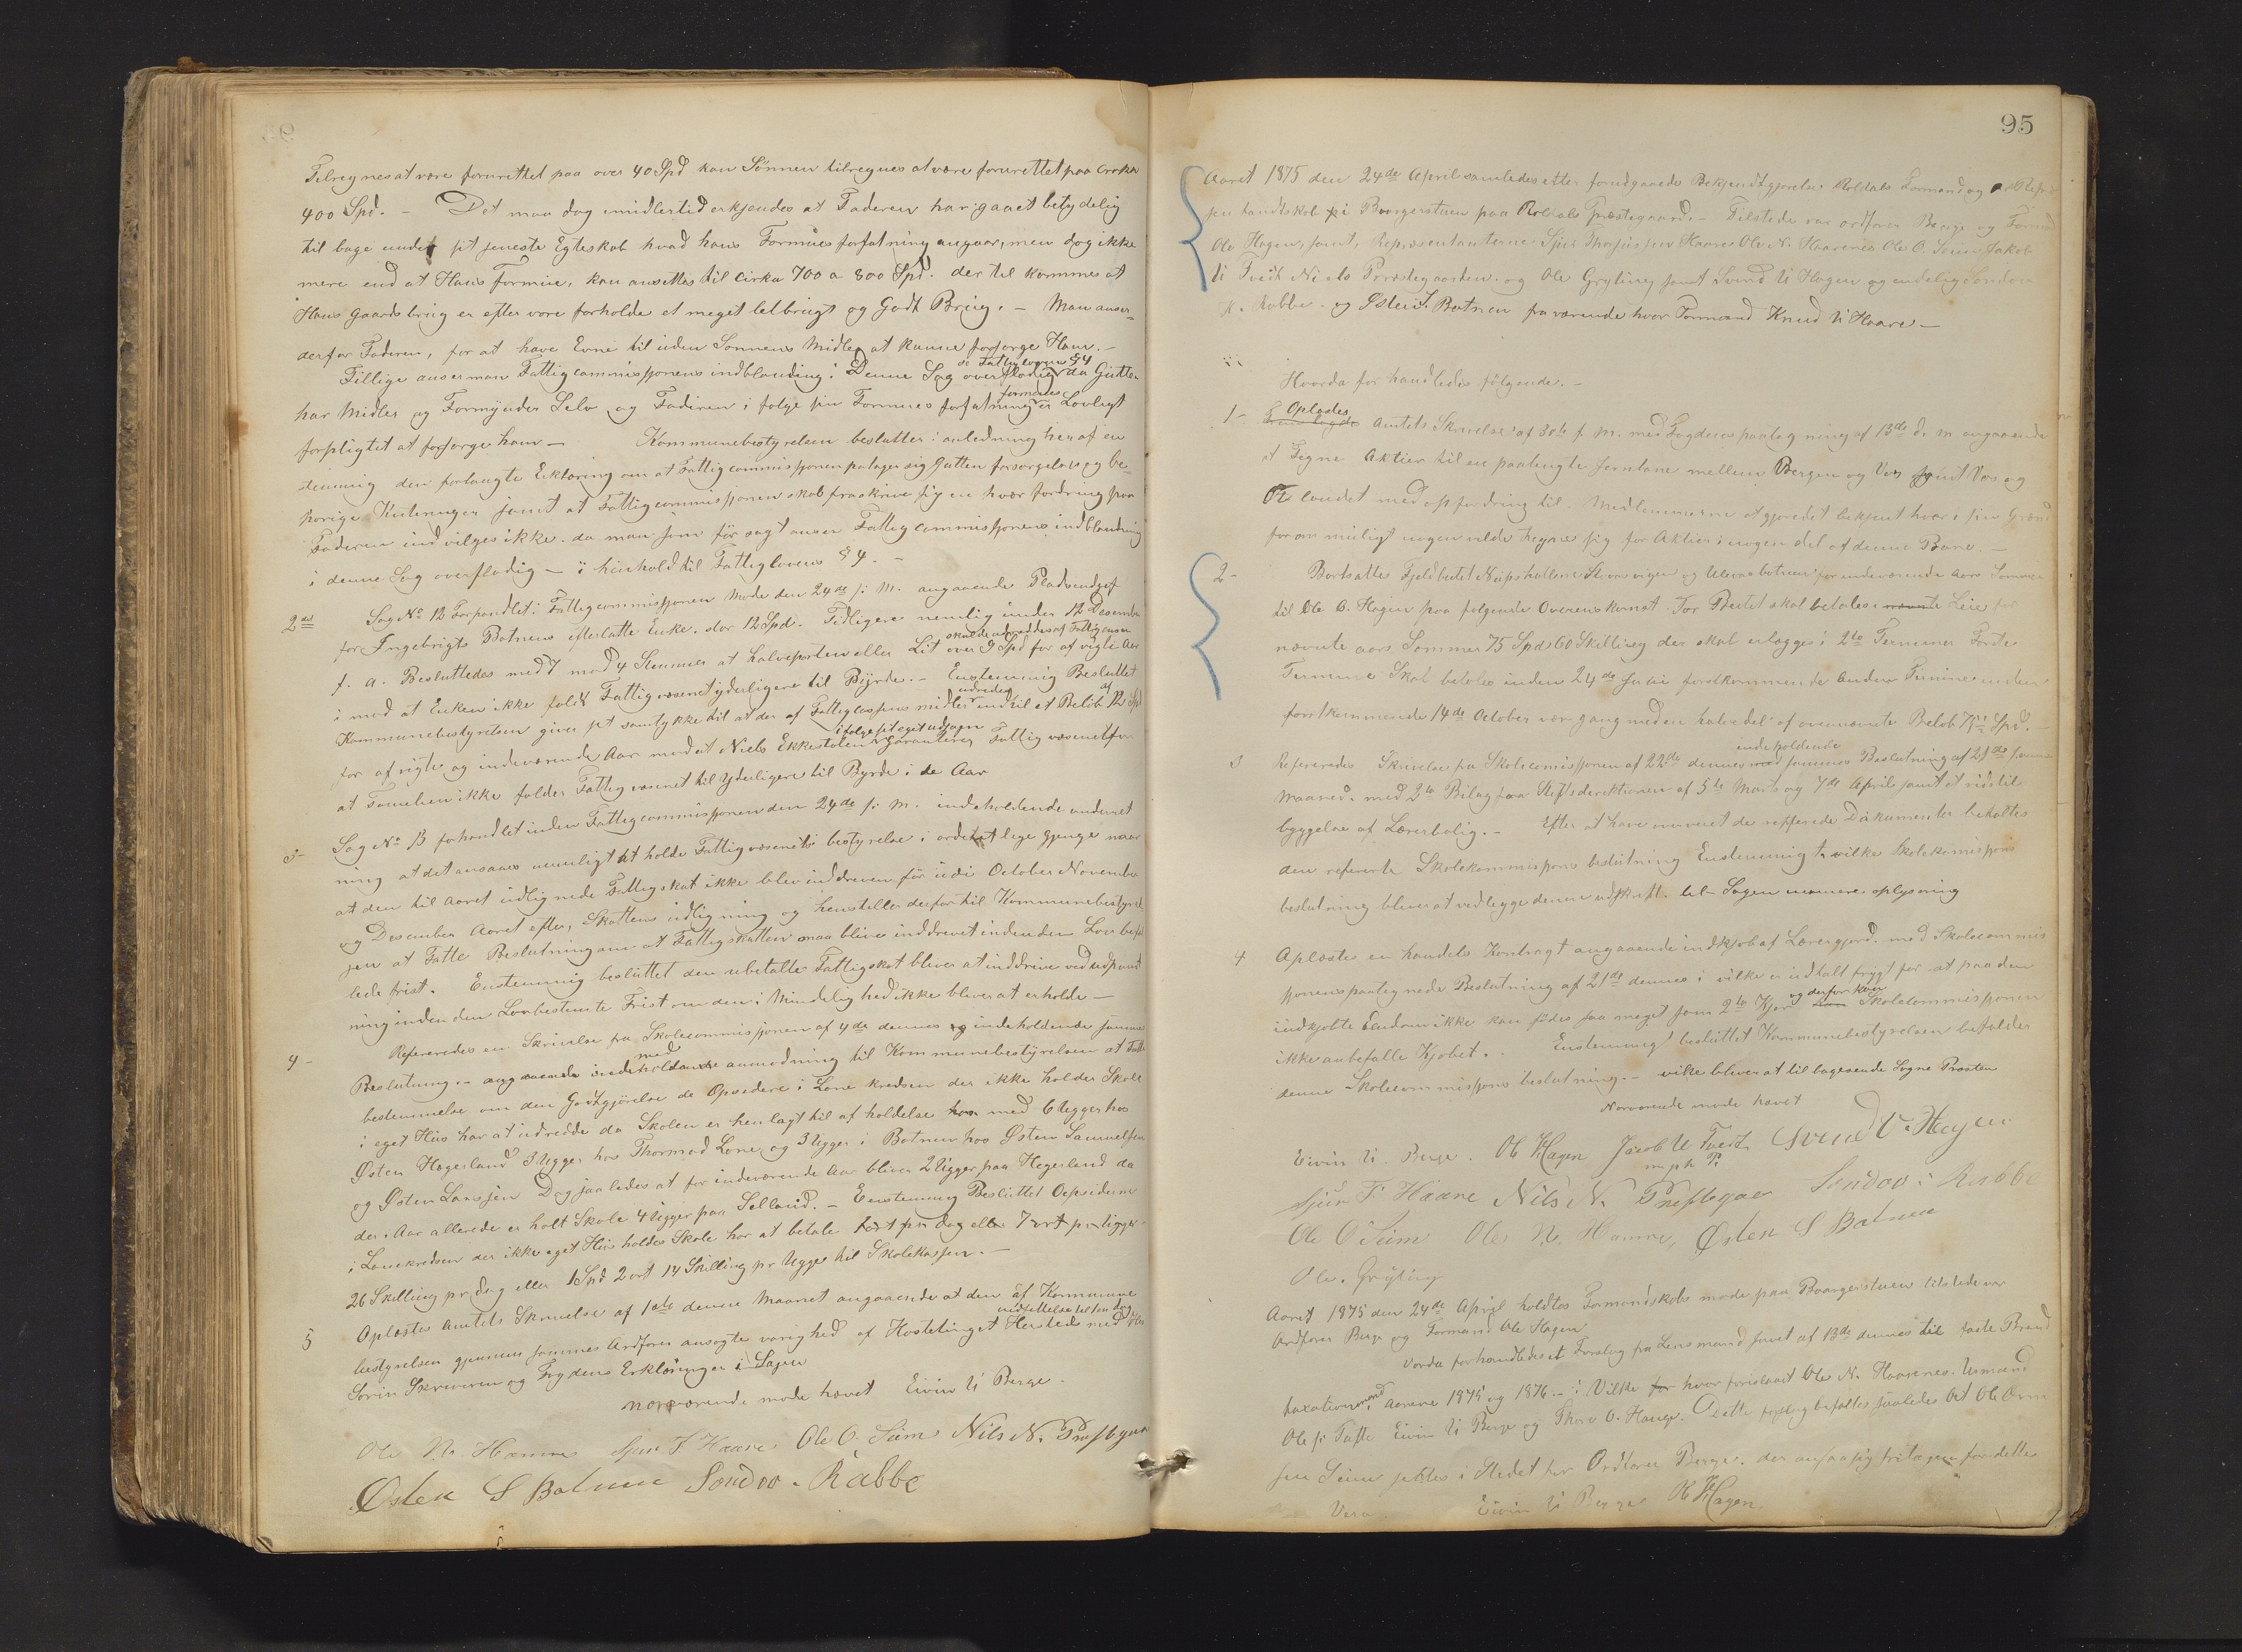 Tilregnes at være forurettet paa over 40 Spd kan Sønnen tilregnes at være forurettet paa cirka
400 Spd. - Det maa dog imidlertid erkjendes at Faderen har gaaet betydelig
til bage under sit seneste Egteskab hvad hans Formues forfatning angaar, men dog ikke
mere end at Hans formue, kan ansettes til cirka 700 a 800 Spd. der til kommes at
Hans Gaardsbrug er efter vore forholde et meget letbrugt og Godt Brug. - Man anser
derfor Faderen, for at have Evne til uden Sønnens Midler at kunne forsørge Ham. -
Tillige anser man Fattigcommissjonens indblanding i Denne Sag overflødig se Fattiglovens § 4 da Gutten
har Midler og Formynder Selv og Faderen i følge sin Formues forfatning formenes er Lovligt
forpligtet at forsørge ham - Kommunebestyrelsen beslutter i anledning heraf en
stemmig den forlangte Erklæring om at Fattigcommissjonen patager sig Gutten forsørgelse og be
hørige Kuteringer samt at Fattigcommissjonen skal fraskrive sig en hver fordring paa
Faderen indvilges ikke. da man som før sagt anser Fattigcommissjonens indblanding
i denne Sag overflødig - i henhold til Fattiglovens § 4. -
2det Sag No 12 Forhandlet i Fattigcommissjonen Møde den 24de f. M. angaaende
for Ingebrigt Botnens efterlatte Enke. stor 12 Spd. Tidligere nemlig under 12 Desember
f. a. Besluttedes med 7 mod 4 Stemmer at halveparten eller Lit over 9 Spd skulde udreddes af Fattigkassen for afvigte Aar
i mod at Enken ikke faldt Fattigvæsenet yderligere til Byrde. - Enstemmig Besluttet
Kommunebestyrelsen giver sit samtykke til at der af Fattigcassens midler udredes indtil et Beløb af 12 Spd
for afvigte og indeværende Aar mod at Niels Ekkestølen i følge sit eget udsagn Garanterer Fattigvæsenet for
at Familien ikke falder Fattigvæsenet til Yderligere til Byrde i de Aar
3- Sag No 13 forhandlet inden Fattigcommissjonen den 24de f. M. indeholdende andmerk
ning at det ansaaes umuligt at holde Fattigvæsenets bestyrelse i ordentlige gjenge naar
at den til Aaret udlignede Fattigskat ikke blev inddreven før udi October November
og Desember Aaret efter, Skattens udligning og henstilles derfor til Kommunebestyrel
sen at Fatte Beslutning om at Fattigskatten maa blive inddrevet inden den Lov befa
lede frist. Enstemmig besluttet den ubetalte Fattigskat bliver at inddrive ved udpant
ning inden den Lovbestemte Frist om den i Mindelighed ikke bliver at erholde -
4- Refereredes en Skrivelse fra Skolecommissjonen af 4de dennes og indeholdende samme
Beslutning. - angaaende indeholdende med anmodning til Kommunebestyrelsen at Fatte
bestemmelse om den Godtgjørelse de Opsidere i Lone kredsen der ikke holder Skole
i eget Hus har at udredde da Skolen er henlagt til af holdelse med 6 Ugger hos
Østen Hegerland 3 Ugger hos Thormod Lone og 3 Ugger i Botnen hos Østen Samuelsen
og Østen Larssen Dog saaledes at for indeværende Aar bliver 2 Ugger paa Hegerland da
der i Aar allerede er holt Skole 4 Ugger paa Selland. - Enstemmig Besluttet Opsiderne
i Lonekredsen der ikke eget Hus holdes Skole har at betale 1 ort pr dag eller 7 ort pr ugge
26 Skilling pr dag eller 1 Spd 2 ort 14 Skilling pr Ugge til Skolekassen. -
5 Oplæstes Amtets Skrivelse af 1ste denne Maaned angaaende at den af Kommune
bestyrelsen gjennem sammes Ordfører ansøgte varighed af Høstetinget udsettelse til 1en dag Hersteds med
Sorin Skriveren og Fogdens Erklæringer i Sagen
nærværende møde hævet Eivin U Berge.
Ole N. Hamre Sjur T Haare Ole O. Seim Nils N. Prestgaar
Østen S Botnen Sondov. Rabbe
95
Aaret 1875 den 24de April samledes efter forudgaaede Bekjendtgjørelse Roldals Formand og Repræ
sentandtskab i Borgerstuen paa Roldals Præstegaard. - Tilstede var ordfører Berge og Formand
Ole Hagen, samt, Representanterne Sjur Thorsensen Haare Ole N. Haarenes Ole O. Seim Jakob
U Tveit Niels Præstegaarden. og Ole Gryting samt Svend U Hagen og endelig Sondov
K. Rabbe. og Østen S. Botnen fraværende hvor Formand Knud U Haare -
Hvorda for handledes følgende. -
1- Oplæstes Amtets Skrivelse af 30te f. M. med Fogdens paategning af 13de d. m angaaende
at Tegne Aktier til en paatengte Jernbane mellem Bergen og Vos samt Vos og
Østlandet med opfordring til Medlemmerne at gjøre det bekjent hver i sin Grænd
for om muligt nogen vilde tegne sig for Aktier i nogen del af denne Bane. -
2- Bortsattes Fjeldbeitet Nupshallene Storavigen og Ulevaabotnen for indeværende Aars Sommer
til Ole O. Hagen paa følgende Overenskomst. For Beitet skal betales i Leie for
nævnte aars Sommer 75 Spd 60 Skilling der skal erlægges i 2to Terminer Første
Termine Skal betales inden 24de Juni førstkommende Anden Termine inden
førstkommende 14de October vær gang med en halvedel af ovennævnte Beløb 75½ Spd. -
3 Refereredes Skrivelse fra Skolecomissjonen af 22de dennes indeholdende sammes Beslutning af 21de samme
Maaned. med 2to Bilag fra Stiftsdirektionen af 5te Marts og 7de April samt et rids til
byggelse af Lærerbolig. - Efter at have overveiet de refferede Dokumenter besluttes
den refererte Skolekommissjons beslutning Enstemmigt vilke Skolekommissjons
beslutning bliver at vedlegge denne udskrift. til Sagen nærmere oplysning
4 Aplæstes en handels Kontragt angaaende indkjøb af Lærergjord. med Skolecommis
sjonens paategnede Beslutning af 21de dennes i vilke er udtalt frygt for at paa den
indkjøbte Eiendom ikke kan fødes saa meget som 2to Kjør og derfor kan Skolecommissjonen
ikke anbefalle Kjøbet. - Enstemmig besluttet Kommunebestyrelsen befalder
denne Skolecommissjons beslutning. - vilke bliver at til bagesende Sogne Præsten
Nærværende møde hævet
Eivin U. Berge. Ol Hagen Jacob U Tveit Svend U. Hagen
m p h P:
Sjur T. Haare Nils N. Prestegaar Sondov : Rabbe
Ole O Seim Ole N. Hamre, Østen S Botnen
Ole. Gryting
Aaret 1875 den 24de April holdtes Formandskabs møde paa Boorgerstuen tilstede var
Ordfører Berge og Formand Ole Hagen
Vorda forhandledes et Forslag fra Lensmand Juvet af 13de dennes til faste Brand
taxationmend Aarene 1875 og 1876. - i Vilke for hvor foreslaaet Ole N. Haarenes. Usmand
Ole J: Tufte Eivin U Berge og Thore O. Hauge. Dette forslag befaltes saaledes At Ole Orm
sen Seim settes i Stedet for Ordfører Berge. der ansaa sig fritagen for dette
Verv. Eivin U Berge Ol Hagen